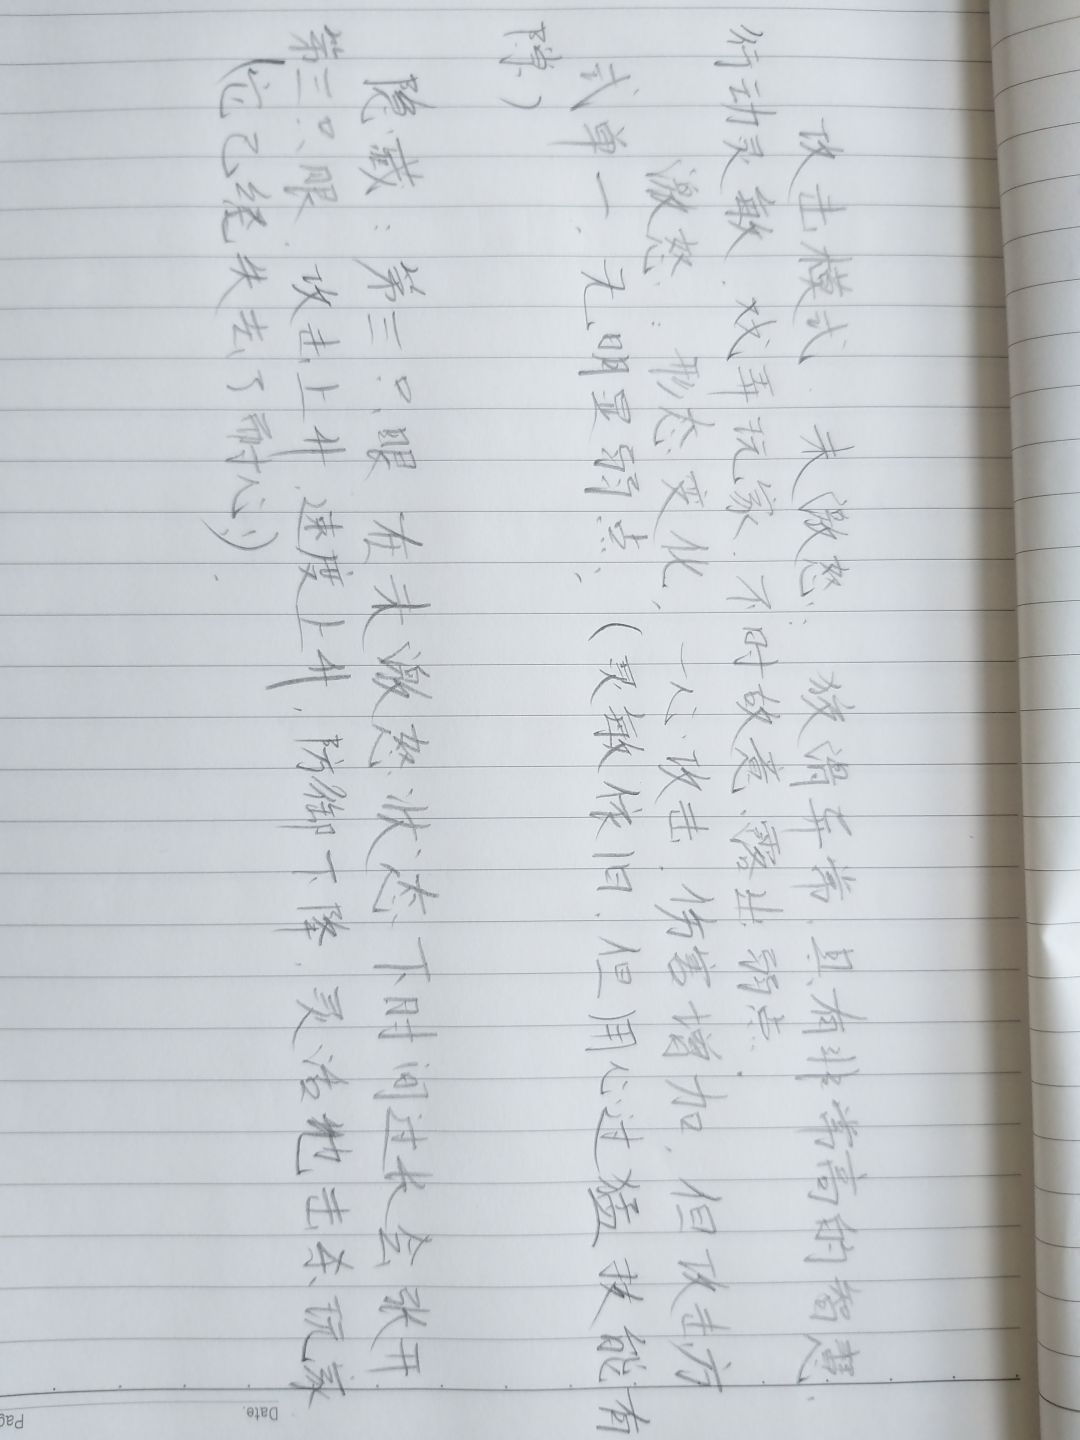 攻击模式 未激怒: 狡猾异常, 且有非常高的智慧,
行动灵敏, 戏弄玩家, 不时故意露出弱点.
激怒: 形态变化, 一心攻击, 伤害增加, 但攻击方
式单一, 无明显弱点; (灵敏依旧, 但用心过猛 技能有
障)
隐藏: 第三只眼 在未激怒状态下时间过长会张开
第三只眼, 攻击上升, 速度上升, 防御下降, 灵活地击杀玩家
(它已经失去了耐心).
Date.
Pag